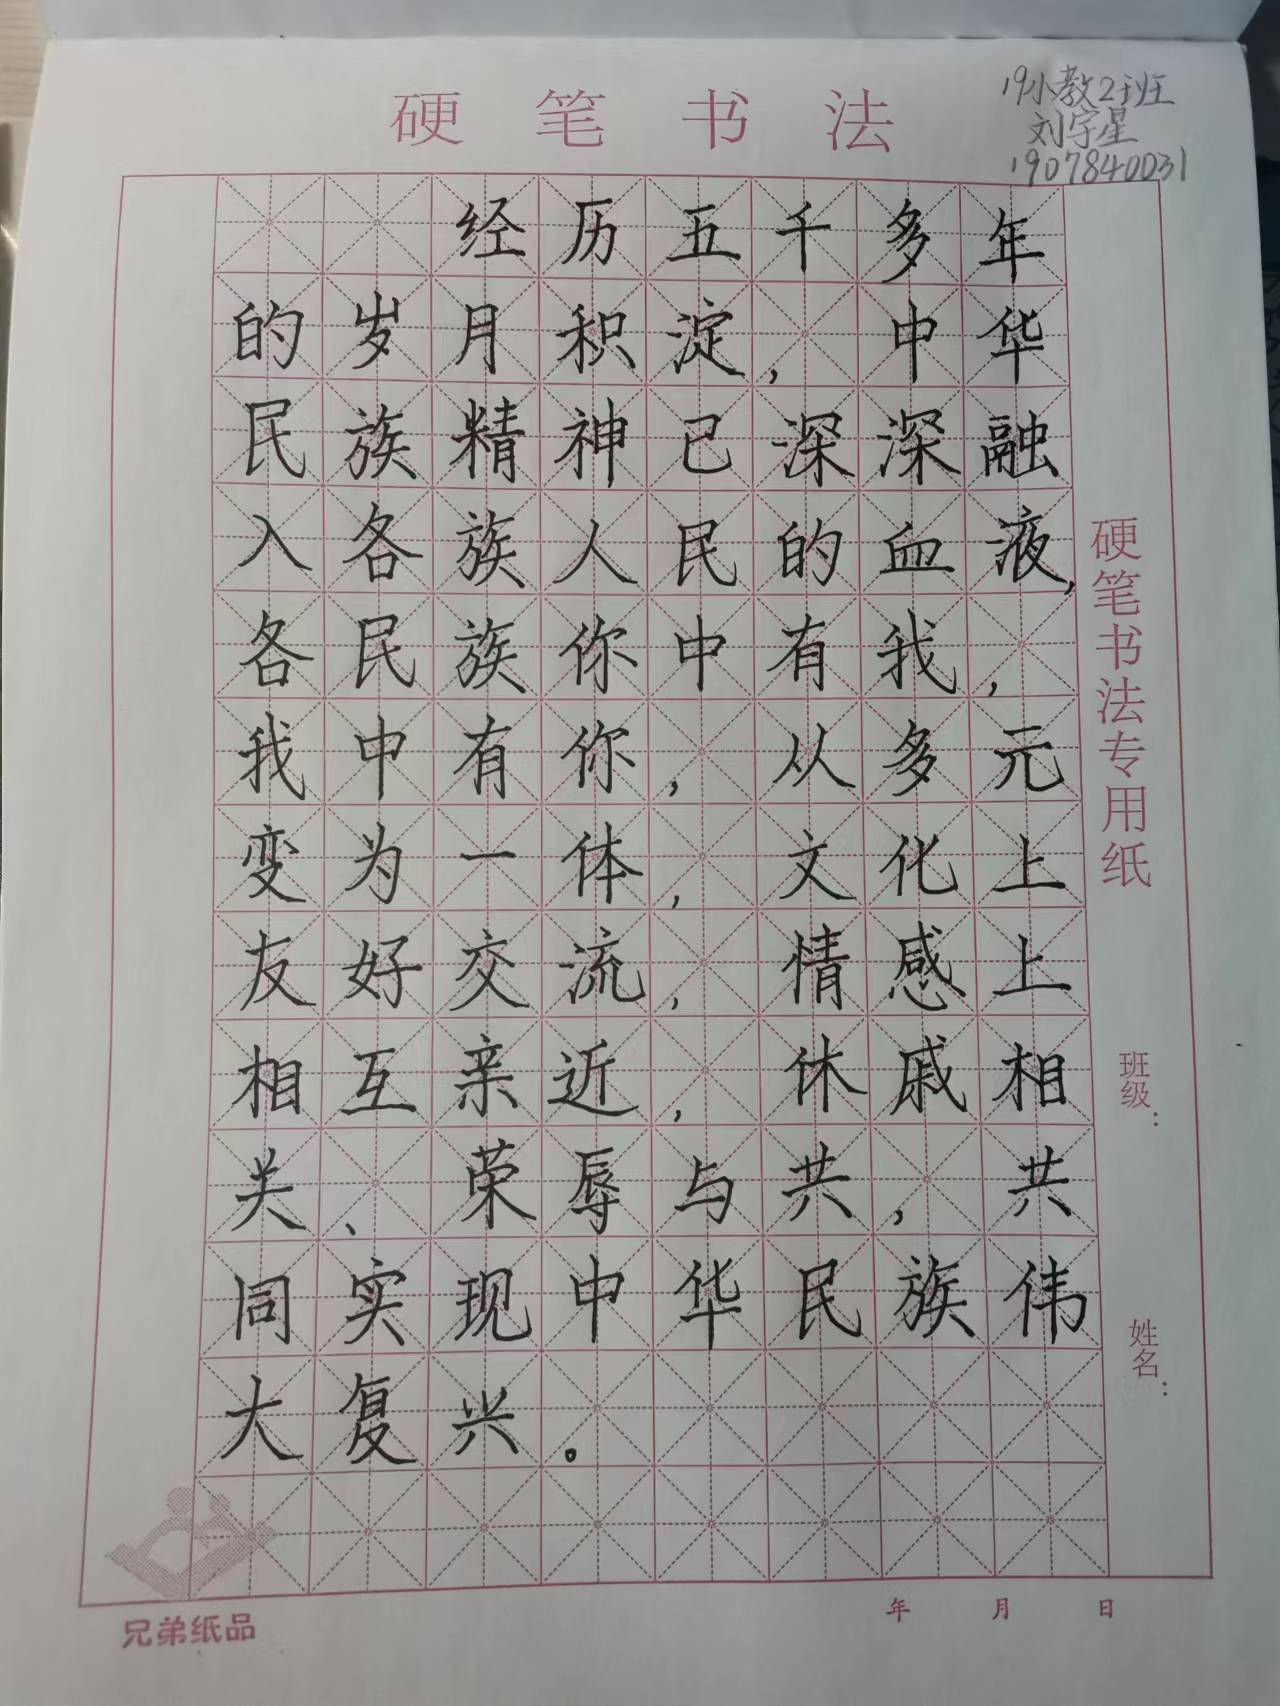 硬笔书法
19小教2班
刘宇星
1907840031
经历五千多年
的岁月积淀，中华
民族精神已深深融
入各族人民的血液，
各民族你中有我，
我中有你，从多元
变为一体，文化上
友好交流，情感上
相互亲近，休戚相
关、荣辱与共，共
同实现中华民族伟
大复兴。
硬笔书法专用纸
班级：
姓名：
兄弟纸品
年 月 日